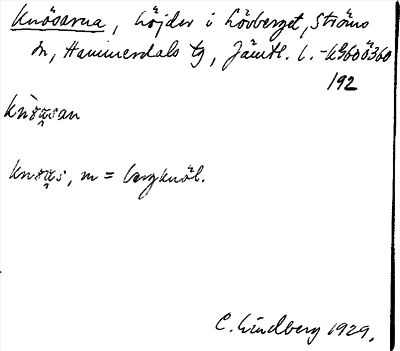 Knösarna, höjder i Lövberget, Ströms
sn, Hammerdals tg, Jämtl. l. -
192
knöäsan
knöäs, m = bergknöl.
C. Lindberg 1929.